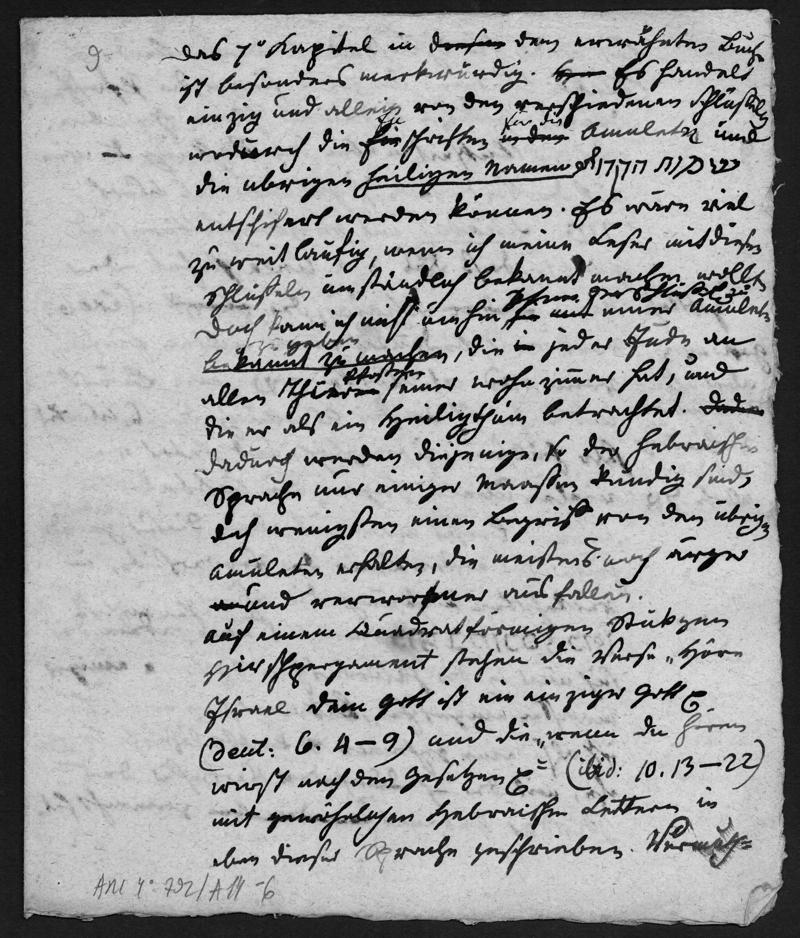 9
Das 7º Kapitel in diesem dem erwähnten Buch
ist besonders merkwürdig. Es handelt
einzig und allein von den verschiedenen Schlüßeln
wodurch die Inschriften für die in den Amuleten und
die übrigen heiligen Namen שמות הקדש
entschifert werden können. Es wäre viel
zu weitläufig, wenn ich meine Leser mit diesen
Schlüßeln umständlich bekannt machen wollte
Doch kann ich nicht umhin den Schlüßel zu einer Amulete
zu geben
bekannt zu machen, die jeder Jude an
allen Thüren Pfosten seiner wohnzimer hat, und
die er als ein Heiligthum betrachtet.
dadurch werden diejenige, so der hebraischen
Sprache nur einiger Maaßen kundig sind,
doch wenigsten einen Begriff von den übrigen
Amuleten erhalten, die meistens noch ärger
und verworfner ausfallen.
Auf einem Quadratförmigen Stükgen
Hirschpergament stehen die Verse „Höre
Israel dein Gott ist ein einziger Gott
(Deut: 6. 4–9) und die „wenn du hören
wirst nach den Gesetzen (ibid: 10. 13–22)
mit gewöhnlichen Hebraischen Lettern in
eben dieser Sprache geschrieben. Vermuth=
Arc 4º 792/A11-6